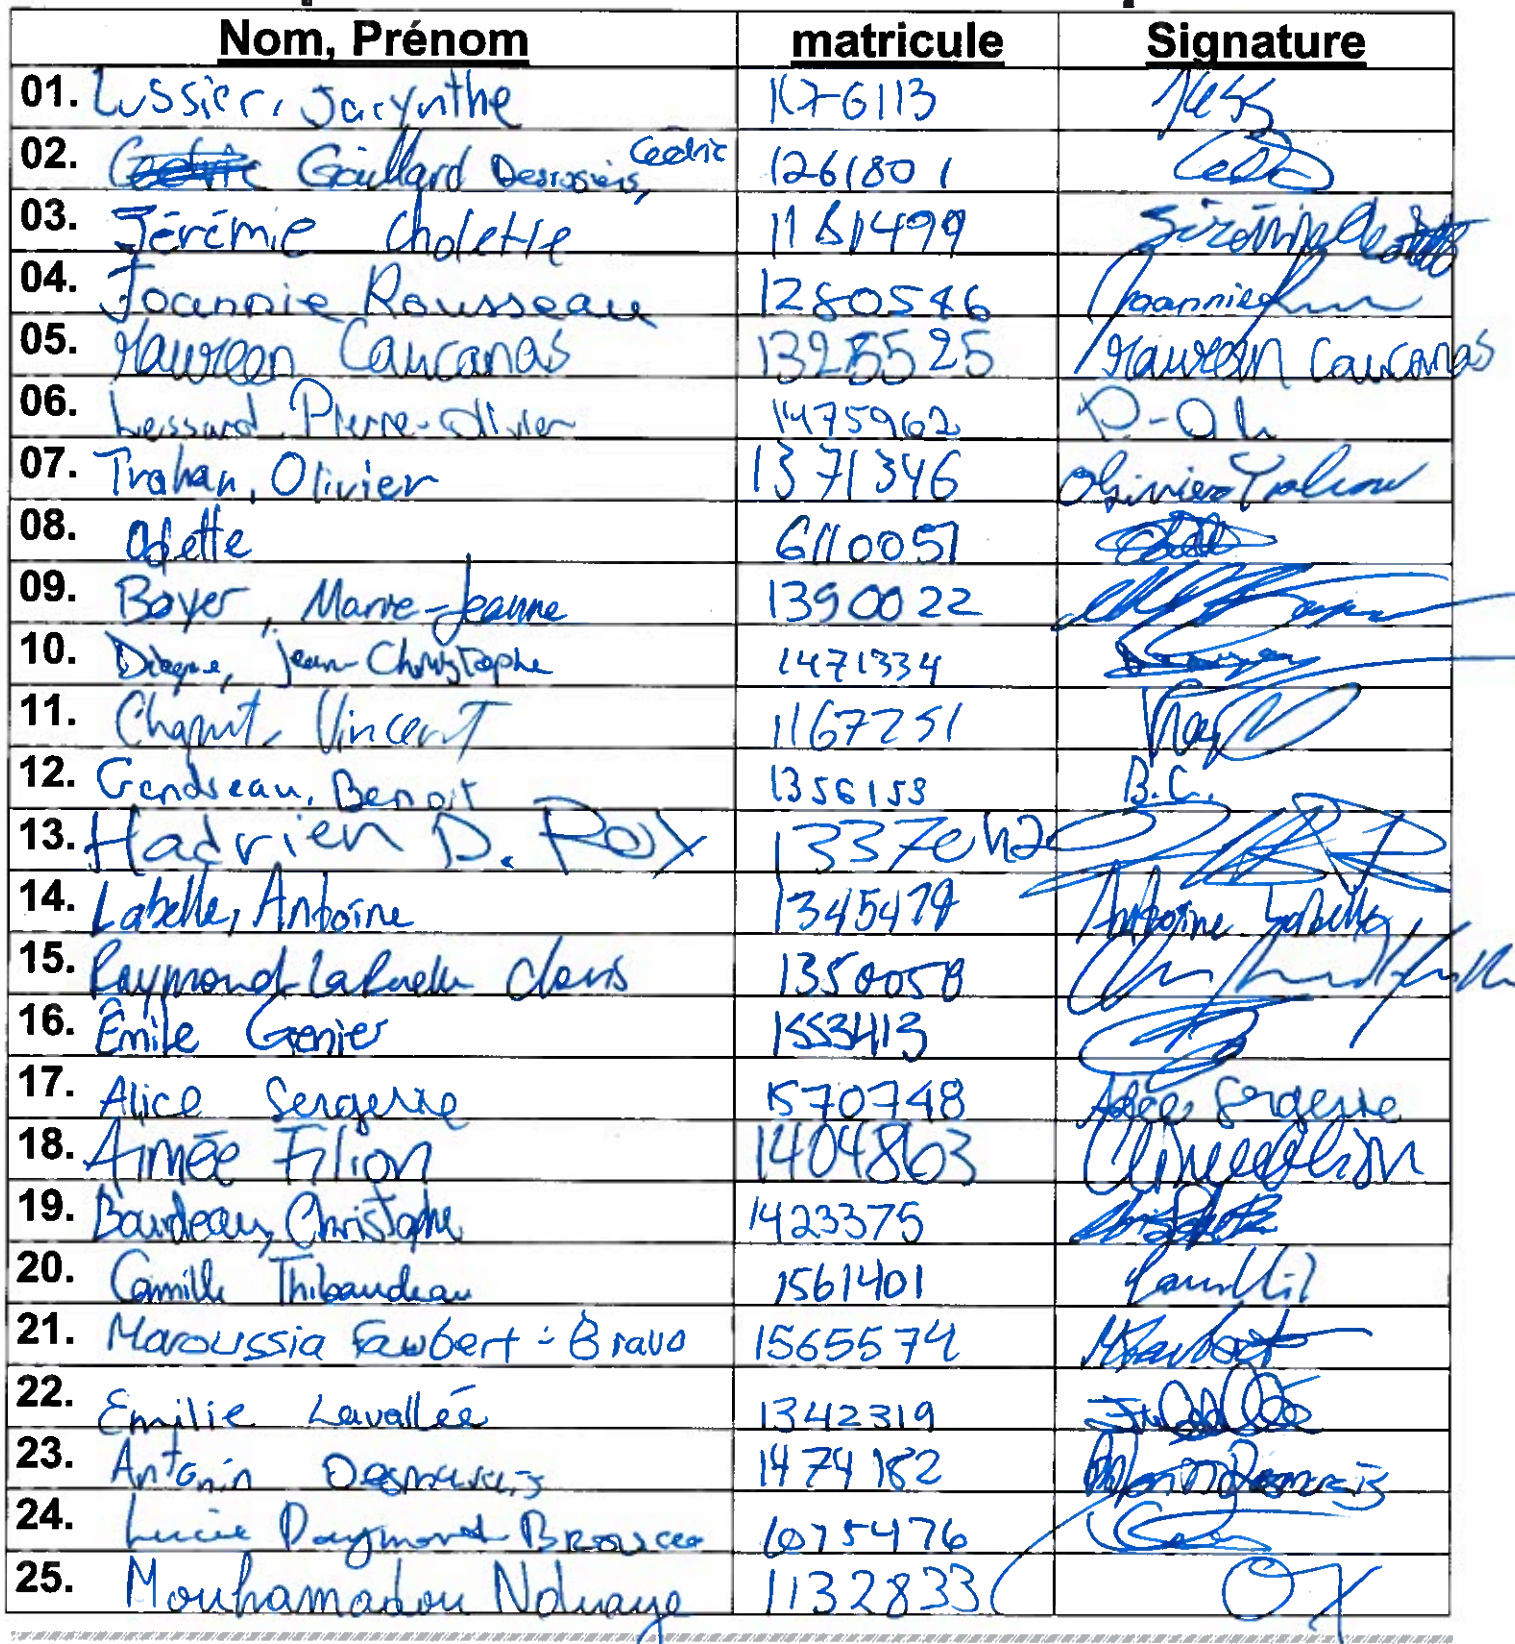 Nom, Prénom matricule Signature
01. Lussier, Jacynthe 1176113 Jess
02. Gaillard Desrosiers, Cédric 1261801
03. Jérémie Cholette 1181499 Jérémie
04. Joannie Rousseau 1280546 Joannie
05. Maureen Caucanas 1325525 Maureen Caucanas
06. Lessard Pierre-Olivier 1475962 P-OL
07. Trahan, Olivier 1371346 Olivier Trahan
08. Odette 6110051
09. Boyer, Marie-Jeanne 1390022
10. Jean-Christophe 1471334
11. Vincent 1167251
12. Gendreau, Benoit 1356153 B.C.
13. Hadrien D. Roy
14. Labelle, Antoine 1345479 Antoine Labelle
15. Raymond-Laruelle 1350058
16. Émile Grenier 1553413
17. Alice Sergerie 1570748 Alice Sergerie
18. Aimée Filion 1404863 Aimée Filion
19. Bourdeau, Christophe 1423375
20. Camille Thibaudeau 1561401 Camille
21. Maroussia Faubert-Bravo 1565574 MFaubert
22. Emilie Lavallée 1342319
23. Antonin Desmarais 1474182 Antonin Desmarais
24. Lucie 6075476
25. Mouhamadou Ndiaye 1132833